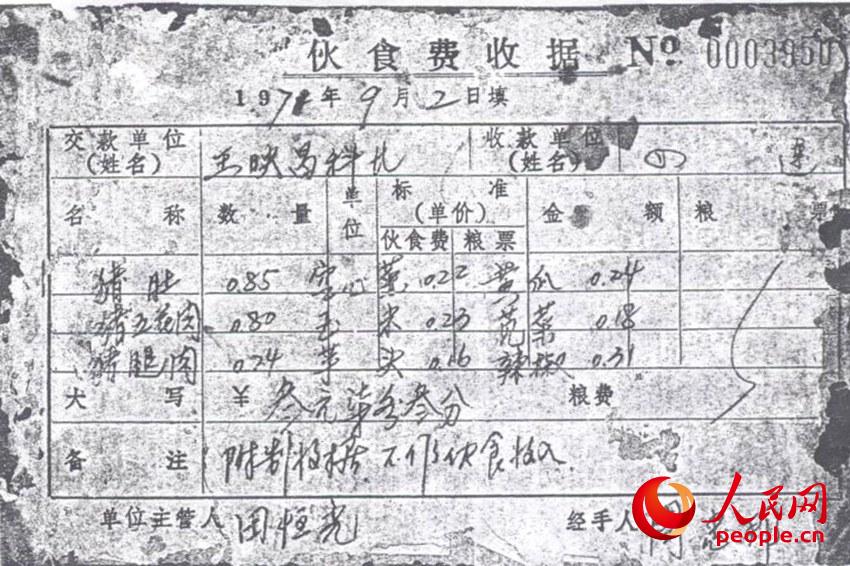 伙食费收据 No 0003950
197 年 9 月 2 日填
交款单位(姓名) 王映昌 收款单位(姓名) 四 连
名称 数量 单位 标准(单价) 伙食费 粮票 金额 粮票
猪肚 0.85 空心 0.22 黄瓜 0.24
猪五花肉 0.80 玉米 0.23 苋菜 0.18
猪腿肉 0.74 芋头 0.16 辣椒 0.31
大写 ¥ 叁元柒 叁分 粮费
备注 附 收据 不作伙食收入
单位主管人 田恒光 经手人
人民网
people.cn